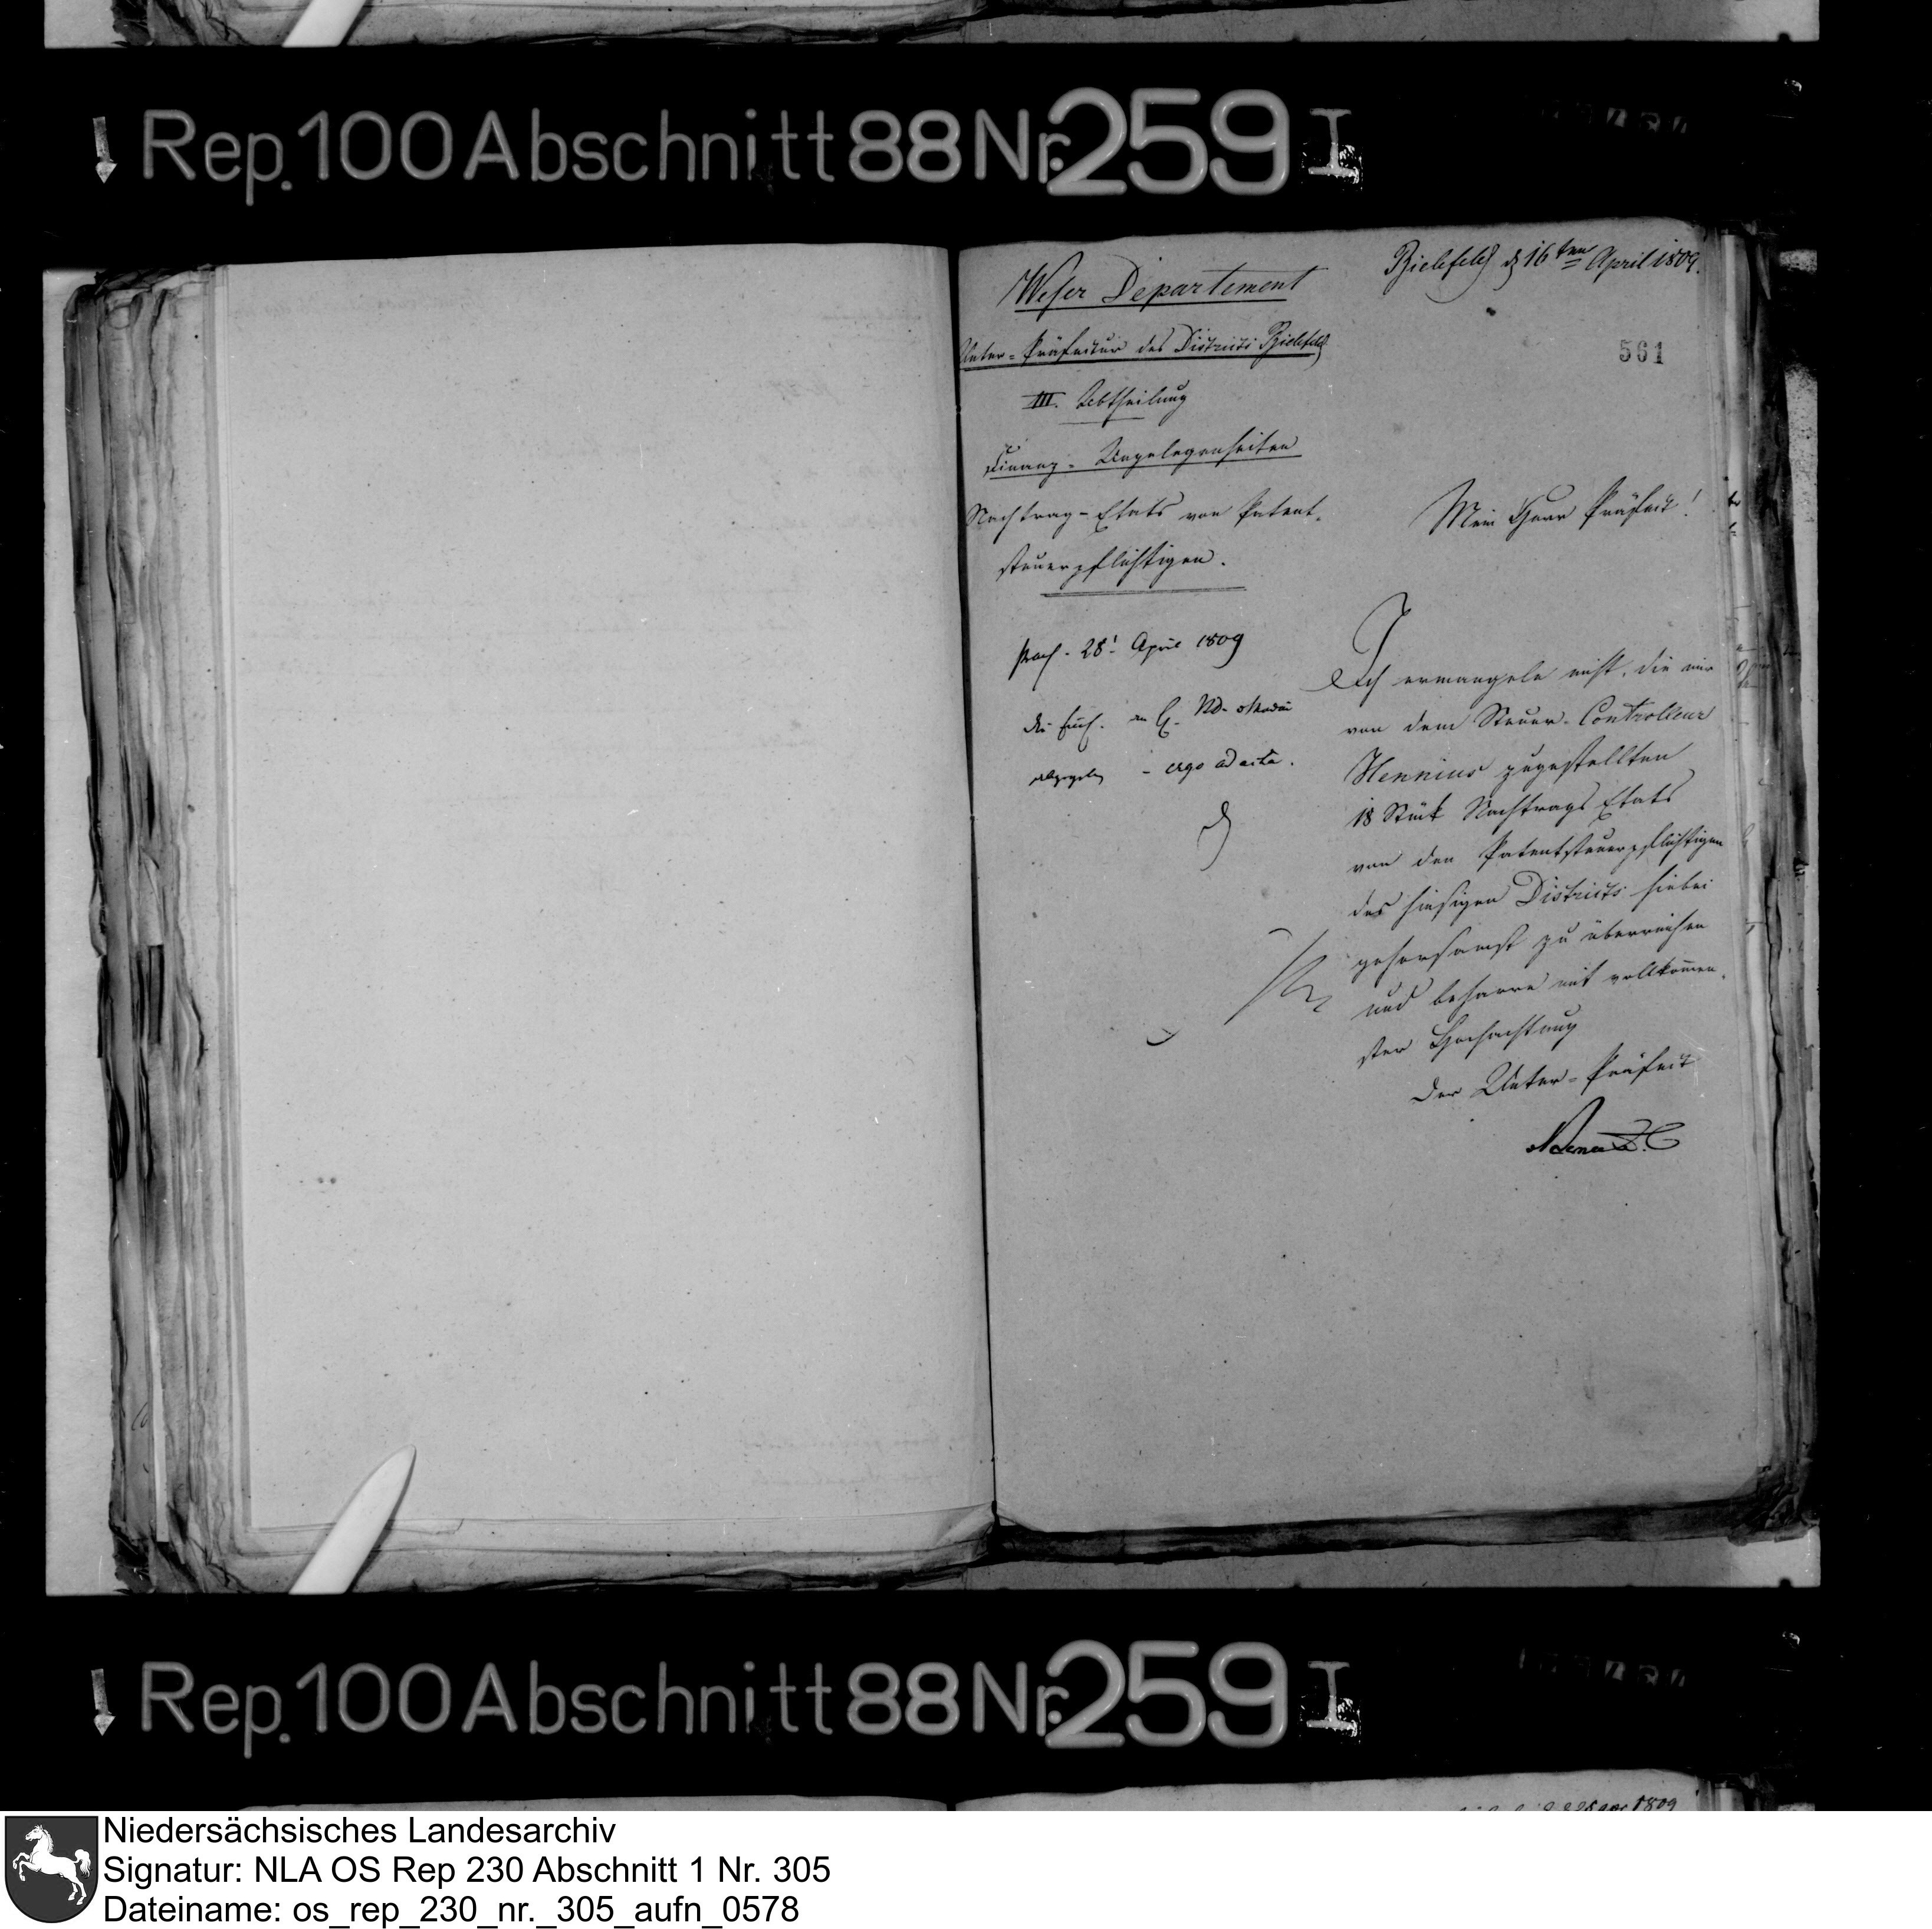 Rep. 100 Abschnitt 88 Nr. 259 I
Weser Departement
Bielefeld d 16ten April 1809.
Unter-Präfectur des Districts Bielefeld
561
III. Abtheilung
Finanz-Angelegenheiten
Nachtrag-Etats von Patent-
steuerpflichtigen.
Mein Herr Präfect!
praes. 28t April 1809
abgegeben - ergo ad acta.
Ich ermangele nicht, die mir
von dem Steuer-Controlleur
Hennius zugestellten
18 Stück Nachtrags Etats
von den Patentsteuerpflichtigen
des hiesigen Districts hiebei
gehorsamst zu überreichen
und beharre mit vollkommen-
ster Hochachtung
Der Unter-Präfect
Rep. 100 Abschnitt 88 Nr. 259 I
1809
Niedersächsisches Landesarchiv
Signatur: NLA OS Rep 230 Abschnitt 1 Nr. 305
Dateiname: os_rep_230_nr._305_aufn_0578